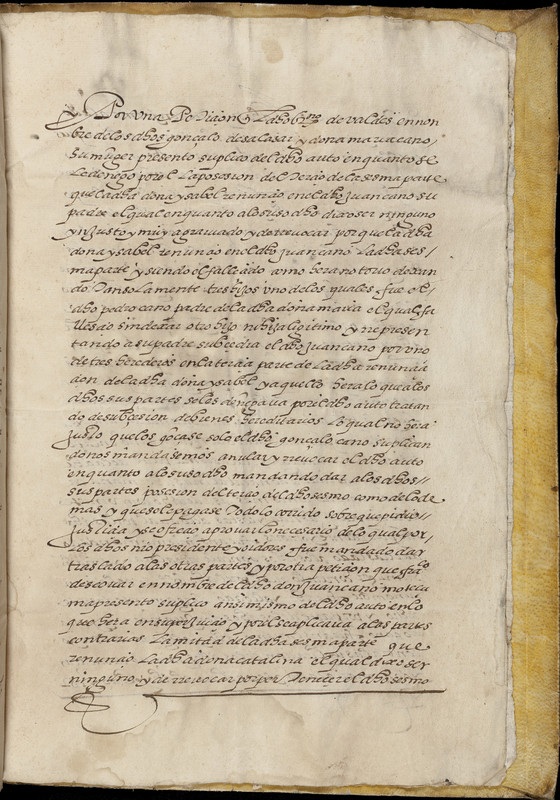 y Por una Peticion q el dho br de valdes en non
bre de los dhos gonçalo de salaçar y dona maria cano,
su muger presento suplico del dho auto en quanto se
le denego por el la posesion del terçio de la sesma parte
que la dha dona ysabel renunçio en el dho Juan cano su
padre el qual en quanto a lo suso dho dixo ser ninguno
ynjusto y muy agraviado y de rrevocar porque la dha
dona ysabel renunçio en el dho juan cano la dha ses/
ma parte y siendo el falleçido como hera notorio dexan
do tan solamente tres hijos uno de los quales fue el
dho pedro cano padre de la dha dona maria el qual fa
llesçio sin dexar otro hijo ni hija ligitimo y rrepresen
tando a su padre subçedia el dho juan cano por uno
de tres herederos en la terçia parte de la dha renunçia
cion de la dha dona ysabel y aquello hera lo que a los
dhos sus partes se les denegava por el dho auto tratan
do de subçesion de bienes hereditarios lo qual no hera
justo que los goçase solo el dho gonçalo cano suplican
donos mandasemos anular y rrevocar el dho auto
en quanto a lo suso dho mandando dar a los dhos //
sus partes posesion del terçio del dho sesmo como de lo de
mas y que se le pagase todo lo corrido sobre que pidio //
justiçia y se ofreçio a provar lo neçesario de lo qual por
los dhos nro presidente y oidores fue mandado dar
traslado a las otras partes y por otra petiçion que fran
de escovar en nombre del dho don Juan cano moteçu
ma presento suplico ansimismo del dho auto en lo
que hera en su perjuiçio y por el se aplicava a las partes
contrarias la mitad de la dha sesma parte que
renunçio la dha dona catalina el qual dixo ser
ninguno y de rrevocar por perteneçer el dho sesmo